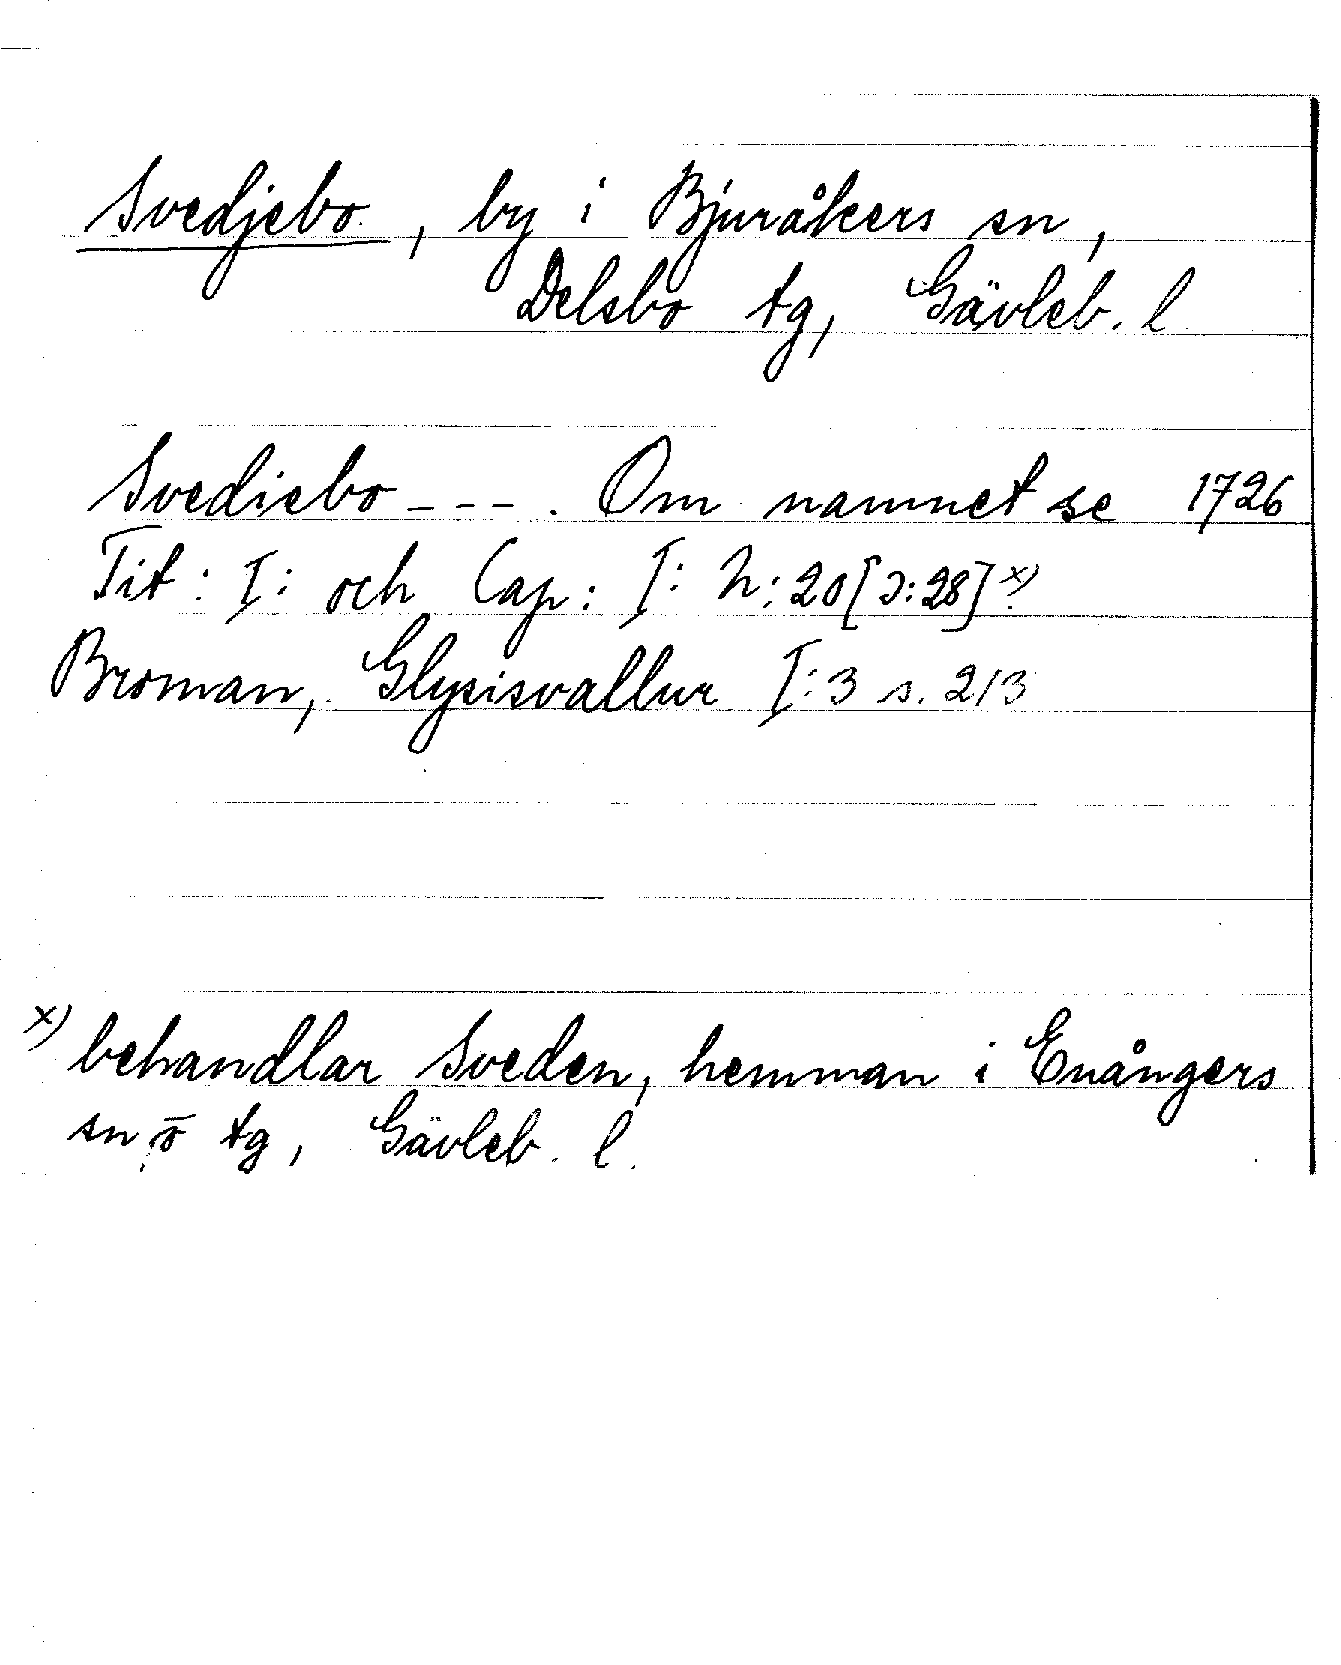 Svedjebo, by i Bjuråkers sn,
Delsbo tg, Gävleb. l
Svediebo - - - . Om namnet se 1726
Tit: I: och Cap: I: h: 20 [ɔ: 28] x)
Broman, Glysisvallur I:3 s. 213
x) behandlar Sveden, hemman i Enångers
sn o tg, Gävleb. l.